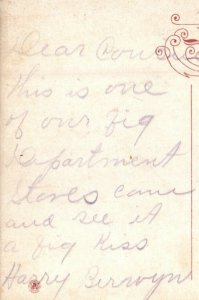 Dear Cousin
this is one
of our Big
Department
Stores come
and see it
a Big Kiss
Harry Berwyn